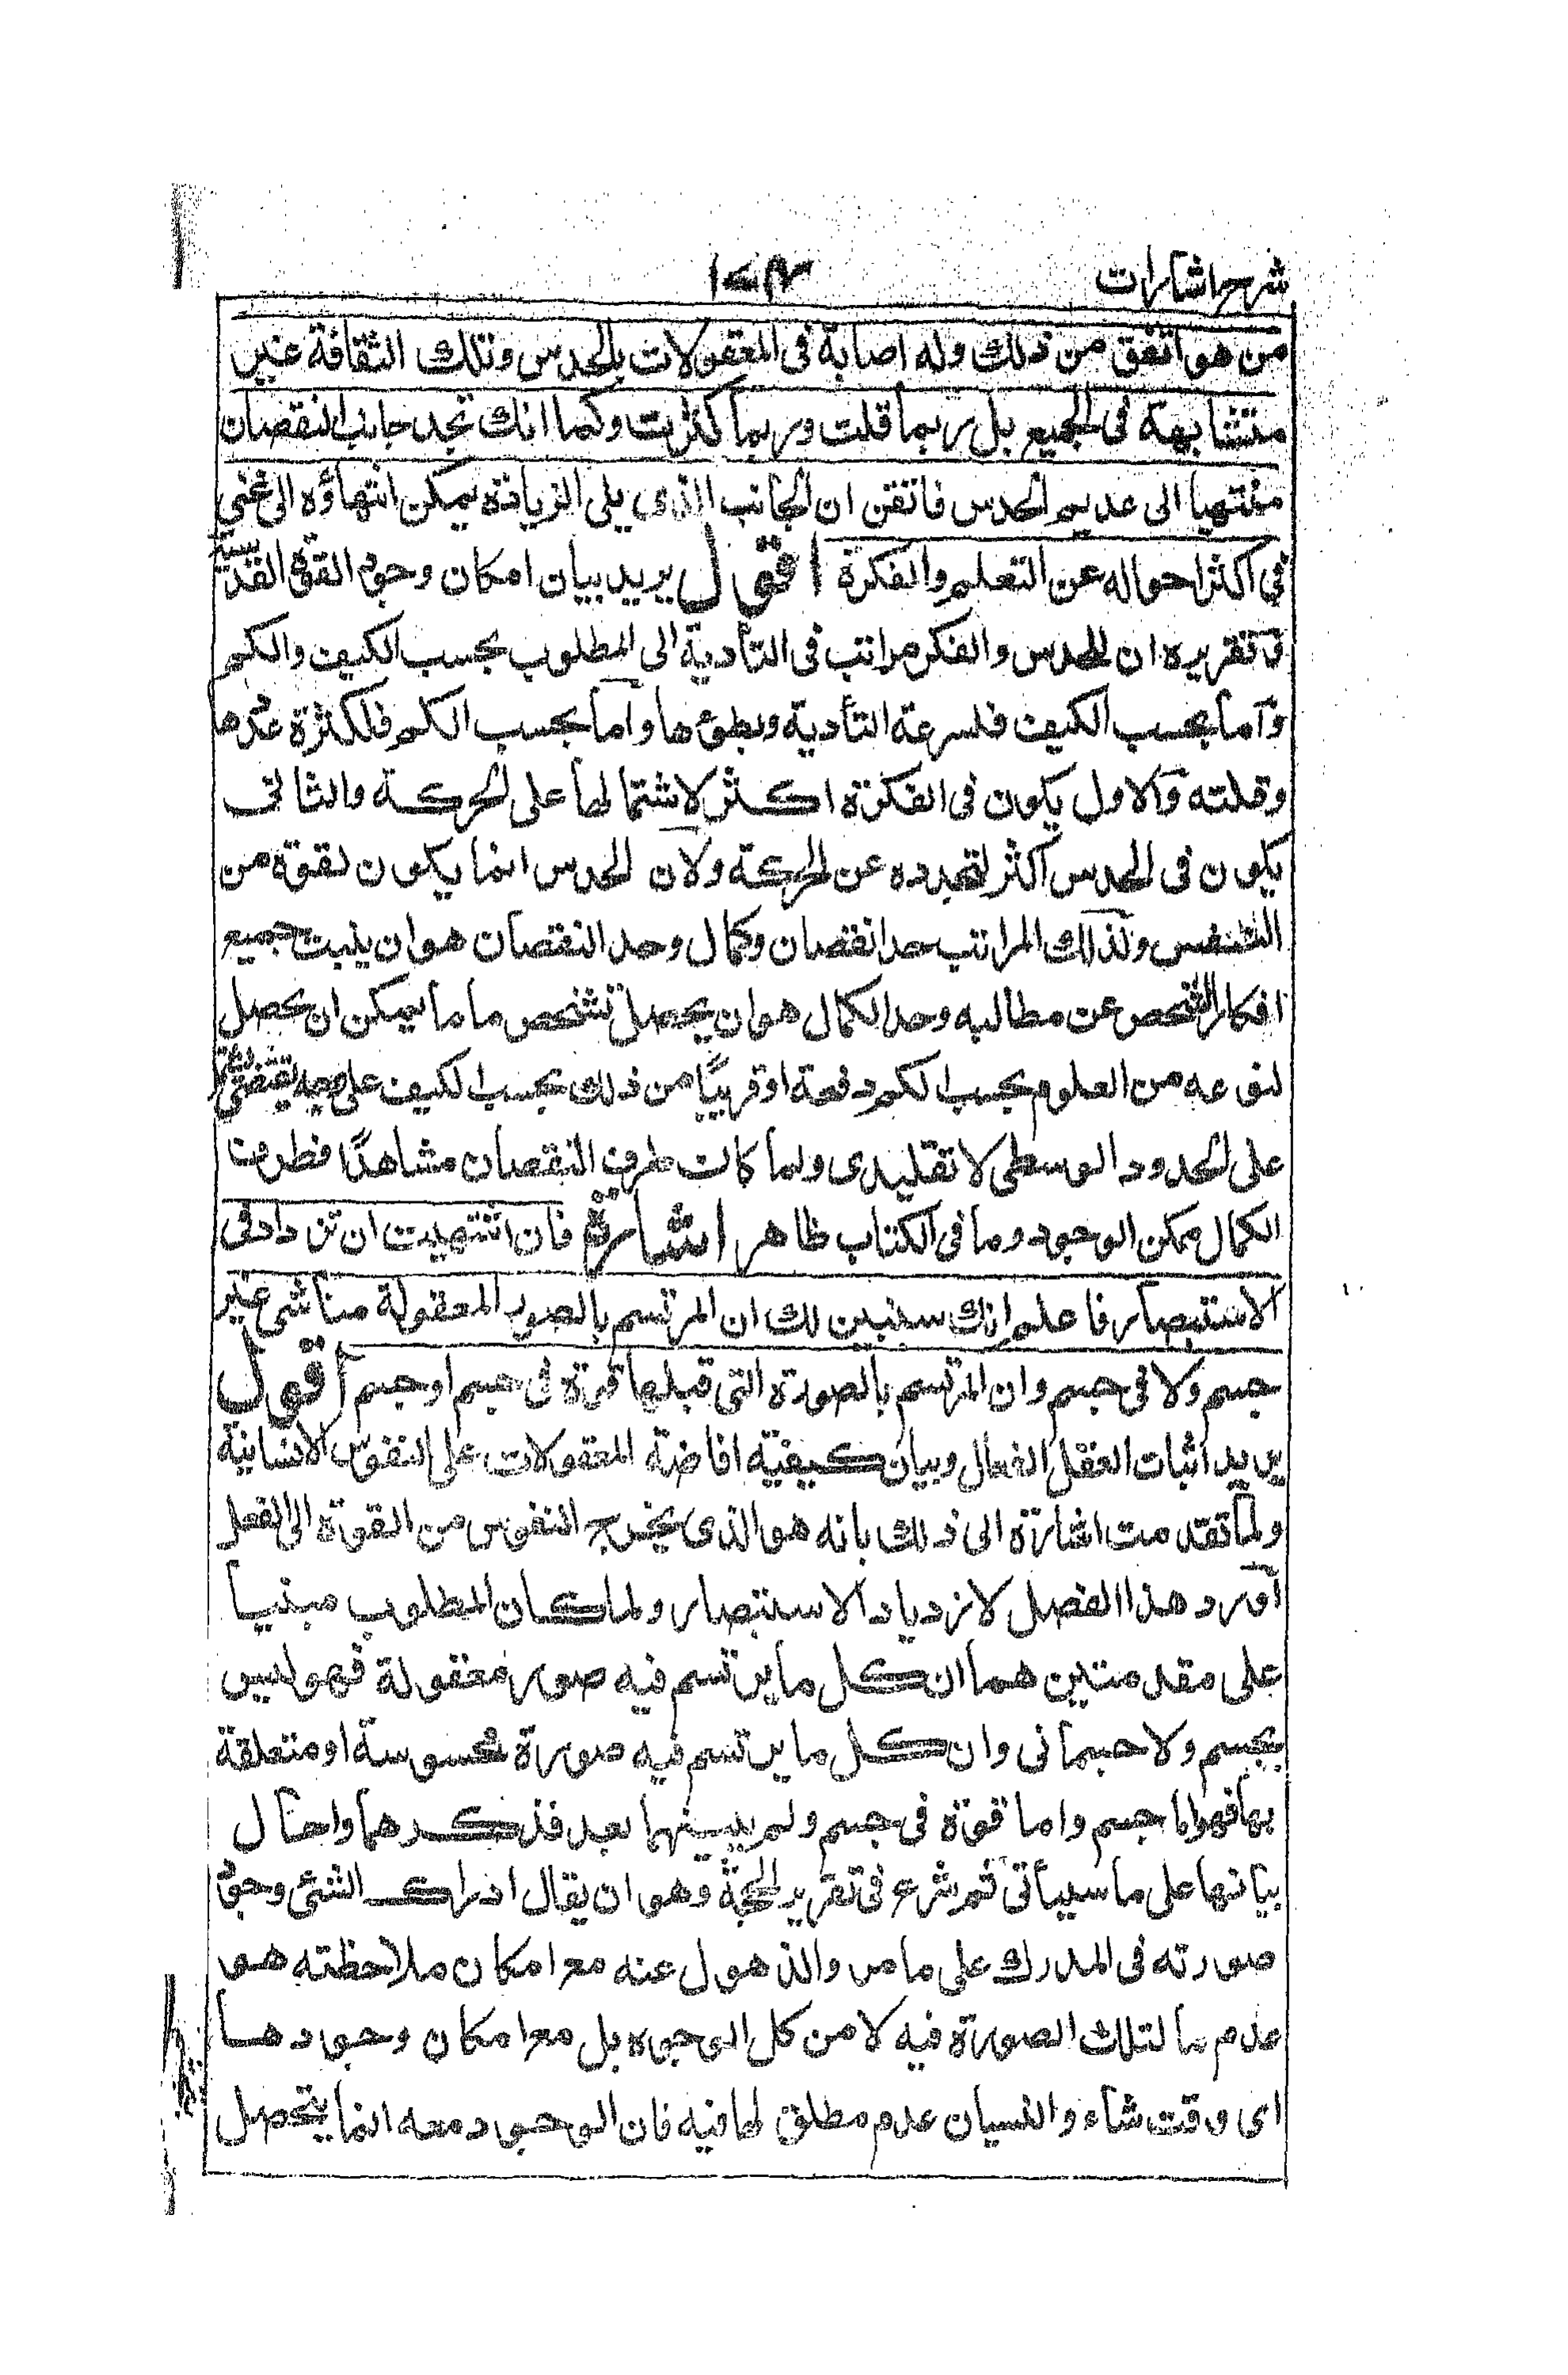 شرح اشارات
من هو اثقف من ذلك وله اصابة فى المعقولات بالحدس وتلك الثقافة غير
متشابهة فى الجميع بل ربما قلت وربما كثرت وكما انك تجد جانب النقصان
منتهيا الى عديم الحدس فاتقن ان الجانب الذى يلى الزيادة يمكن انتهاؤه الى غنى
فى اكثر احواله عن التعلم والفكرة اقول يريد بيان امكان وجود القوة القدسية
و تقريره ان للحدس والفكر مراتب فى التأدية الى المطلوب بحسب الكيف والكم
وآما بحسب الكيف فلسرعة التأدية وبطئ ها وآما بحسب الكم فلكثرة عددها
وقلته وآلاول يكون فى الفكرة اكثر لاشتمالها على الحركة والثانى
يكون فى الحدس اكثر لتجرده عن الحركة ولان الحدس انما يكون لقوة من
النفس ولذلك المراتب حدا نقصان وكمال وحد النقصان هو ان ينبت جميع
افكار الشخص عن مطالبه وحد الكمال هو ان يحصل لشخص ما ما يمكن ان يحصل
لنوعه من العلوم بحسب الكم دفعة او قريبًا من ذلك بحسب الكيف على وجه يقينى
على الحدود الوسطى لا تقليدى ولما كان طرف النقصان مشاهدًا فطرف
الكمال ممكن الوجود وما فى الكتاب ظاهر اشارة فان اشتهيت ان تزداد فى
الاستبصار فاعلم انك ستبين لك ان المرتسم بالصور المعقولة منا شئ غير
جسم ولا فى جسم وان المرتسم بالصورة التى قبلها قوة فى جسم او جسم اقول
يريد اثبات العقل الفعال وبيان كيفية افاضة المعقولات على النفوس الانسانية
ولما تقدمت اشارة الى ذلك بانه هو الذى يخرج النفوس من القوة الى الفعل
آورد هذا الفصل لازدياد الاستبصار ولما كان المطلوب مبنيا
على مقدمتين هما ان كل ما يرتسم فيه صور معقولة فهو ليس
بجسم ولا جسمانى وان كل ما يرتسم فيه صورة محسوسة او متعلقة
بها فهو اما جسم واما قوة فى جسم ولم يبينهما بعد فذكرهما واحال
بيانها على ما سيأتى ثم شرع فى تقرير الحجة وهو ان يقال ادراك الشئ وجود
صورته فى المدرك على ما مر والذهول عنه مع امكان ملاحظته هو
عدم ما لتلك الصورة فيه لا من كل الوجوه بل مع امكان وجودها
اى وقت شاء والنسيان عدم مطلق لها فيه فان الوجود معه انما يتحصل